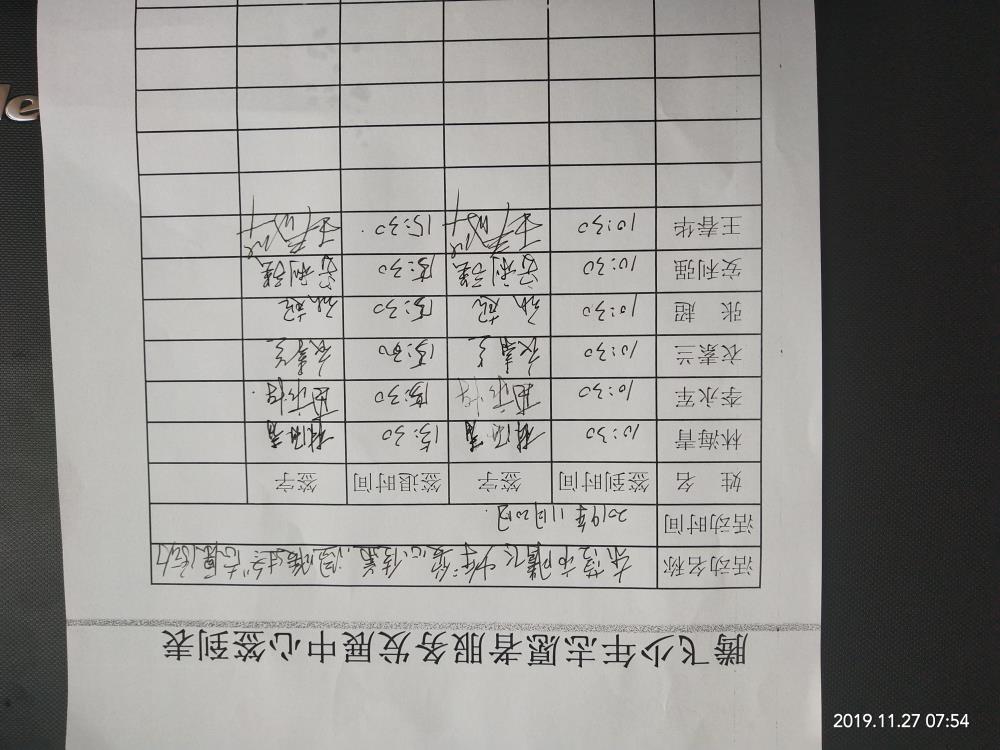 腾飞少年志愿者服务发展中心签到表
活动名称
活动时间 2019年11月20日
姓 名 签到时间 签字 签退时间 签字
林海青 10:30 林海青 15:30 林海青
李永军 10:30 15:30
衣素兰 10:30 衣素兰 15:30 衣素兰
张 超 10:30 张超 15:30 张超
安利强 10:30 安利强 15:30 安利强
王春华 10:30 王春华 15:30 王春华
le
2019.11.27 07:54